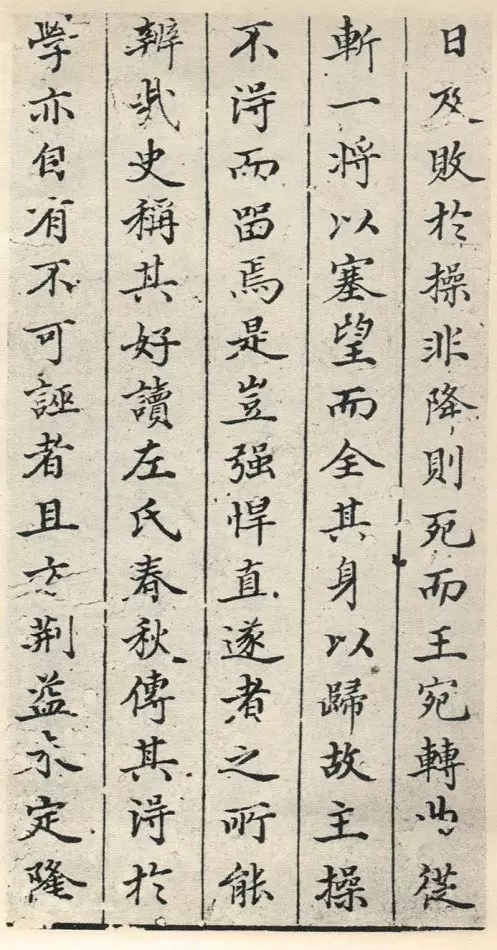 日及敗於操非降則死而王宛轉以從
斬一將以塞望而全其身以歸故主操
不得而留焉是豈强悍直遂者之所能
辨哉史稱其好讀左氏春秋傳其得於
學亦自有不可誣者且方荊益未定隆